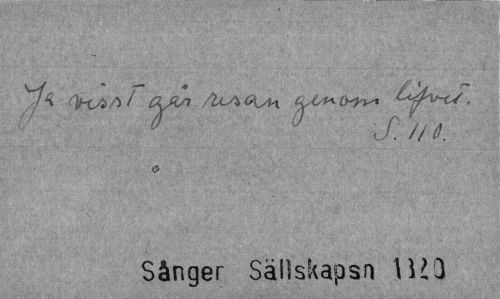 Ja visst går resan genom lifvet.
S. 110.
Sånger Sällskapsn 1820